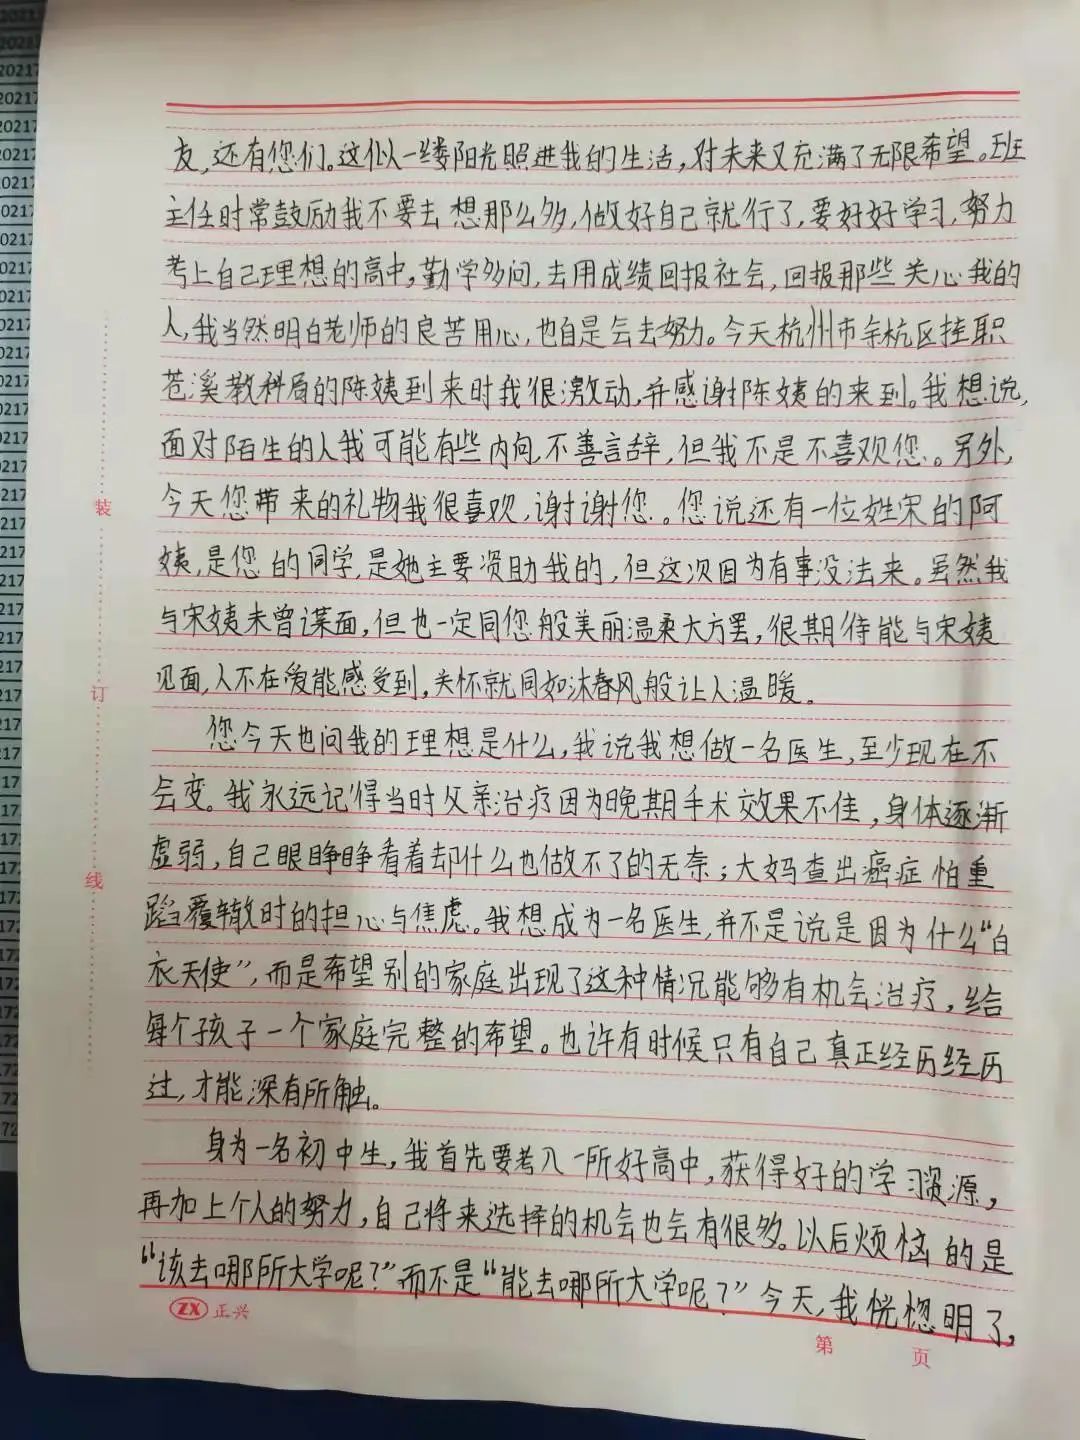 友,还有您们。这似一缕阳光照进我的生活,对未来又充满了无限希望。班
主任时常鼓励我不要去想那么多,做好自己就行了,要好好学习,努力
考上自己理想的高中,勤学多问,去用成绩回报社会,回报那些关心我的
人,我当然明白老师的良苦用心,也自是会去努力。今天杭州市余杭区挂职
苍溪教科局的陈姨到来时我很激动,并感谢陈姨的来到。我想说,
面对陌生的人我可能有些内向,不善言辞,但我不是不喜欢您。另外,
今天您带来的礼物我很喜欢,谢谢您。您说还有一位姓宋的阿
姨,是您的同学,是她主要资助我的,但这次因为有事没法来。虽然我
与宋姨未曾谋面,但也一定同您般美丽温柔大方罢,很期待能与宋姨
见面,人不在爱能感受到,关怀就同如沐春风般让人温暖。
您今天也问我的理想是什么,我说我想做一名医生,至少现在不
会变。我永远记得当时父亲治疗因为晚期手术效果不佳,身体逐渐
虚弱,自己眼睁睁看着却什么也做不了的无奈;大妈查出癌症怕重
蹈覆辙时的担心与焦虑。我想成为一名医生,并不是说是因为什么“白
衣天使”,而是希望别的家庭出现了这种情况能够有机会治疗,给
每个孩子一个家庭完整的希望。也许有时候只有自己真正经历经历
过,才能深有所触。
身为一名初中生,我首先要考入一所好高中,获得好的学习资源,
再加上个人的努力,自己将来选择的机会也会有很多。以后烦恼的是
“该去哪所大学呢?”而不是“能去哪所大学呢?”今天,我恍惚明了,
装
订
线
ZX 正兴
第 页